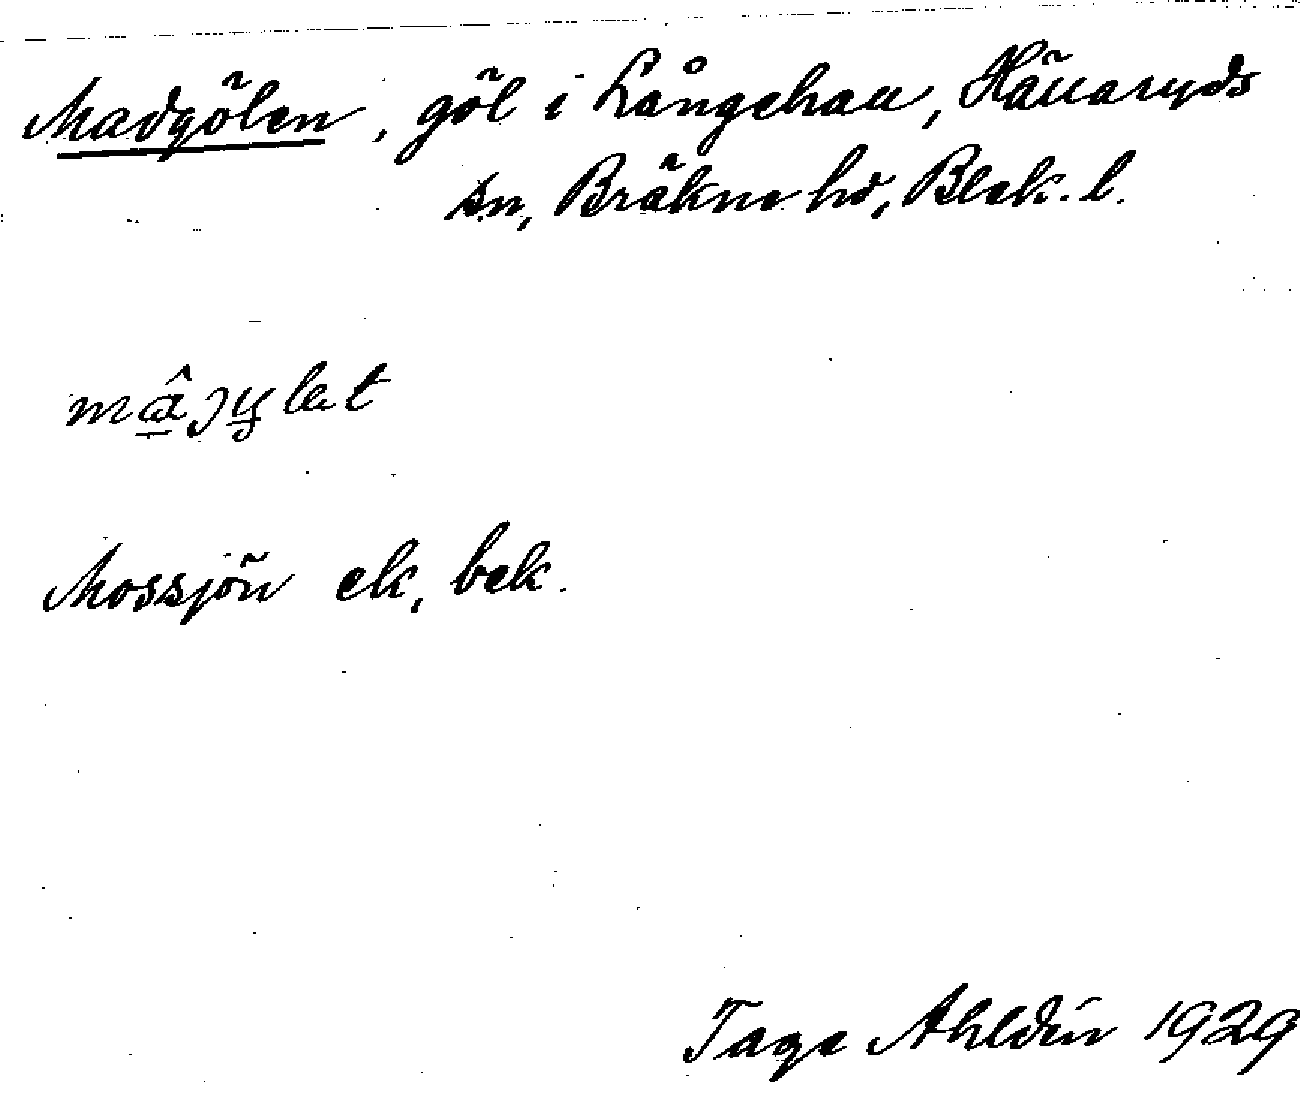 Madgölen, göl i Långehall, Hällaryds
sn, Bräkne hd, Blek. l.
Mossjön ek, bek.
Tage Ahldin 1929